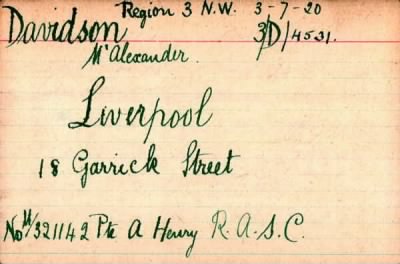 Region 3 N.W. 3-7-20
Davidson 3/D/4531.
Mr Alexander.
Liverpool
18 Garrick Street
No M/321142 Pte A Henry R.A.S.C.